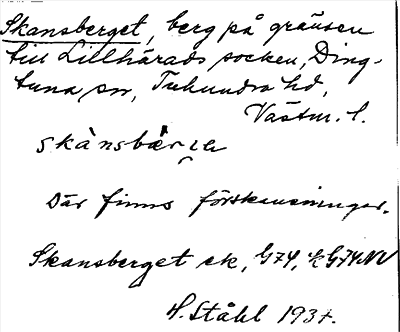 Skansberget, berg på gränsen
till Lillhärads socken, Ding-
tuna sn, Tuhundra hd,
Västm. l.
skànsbär̀ɜ̯ə
Där finns förskansningar.
Skansberget ek, G74, ½ G74NV
H. Ståhl 1937.